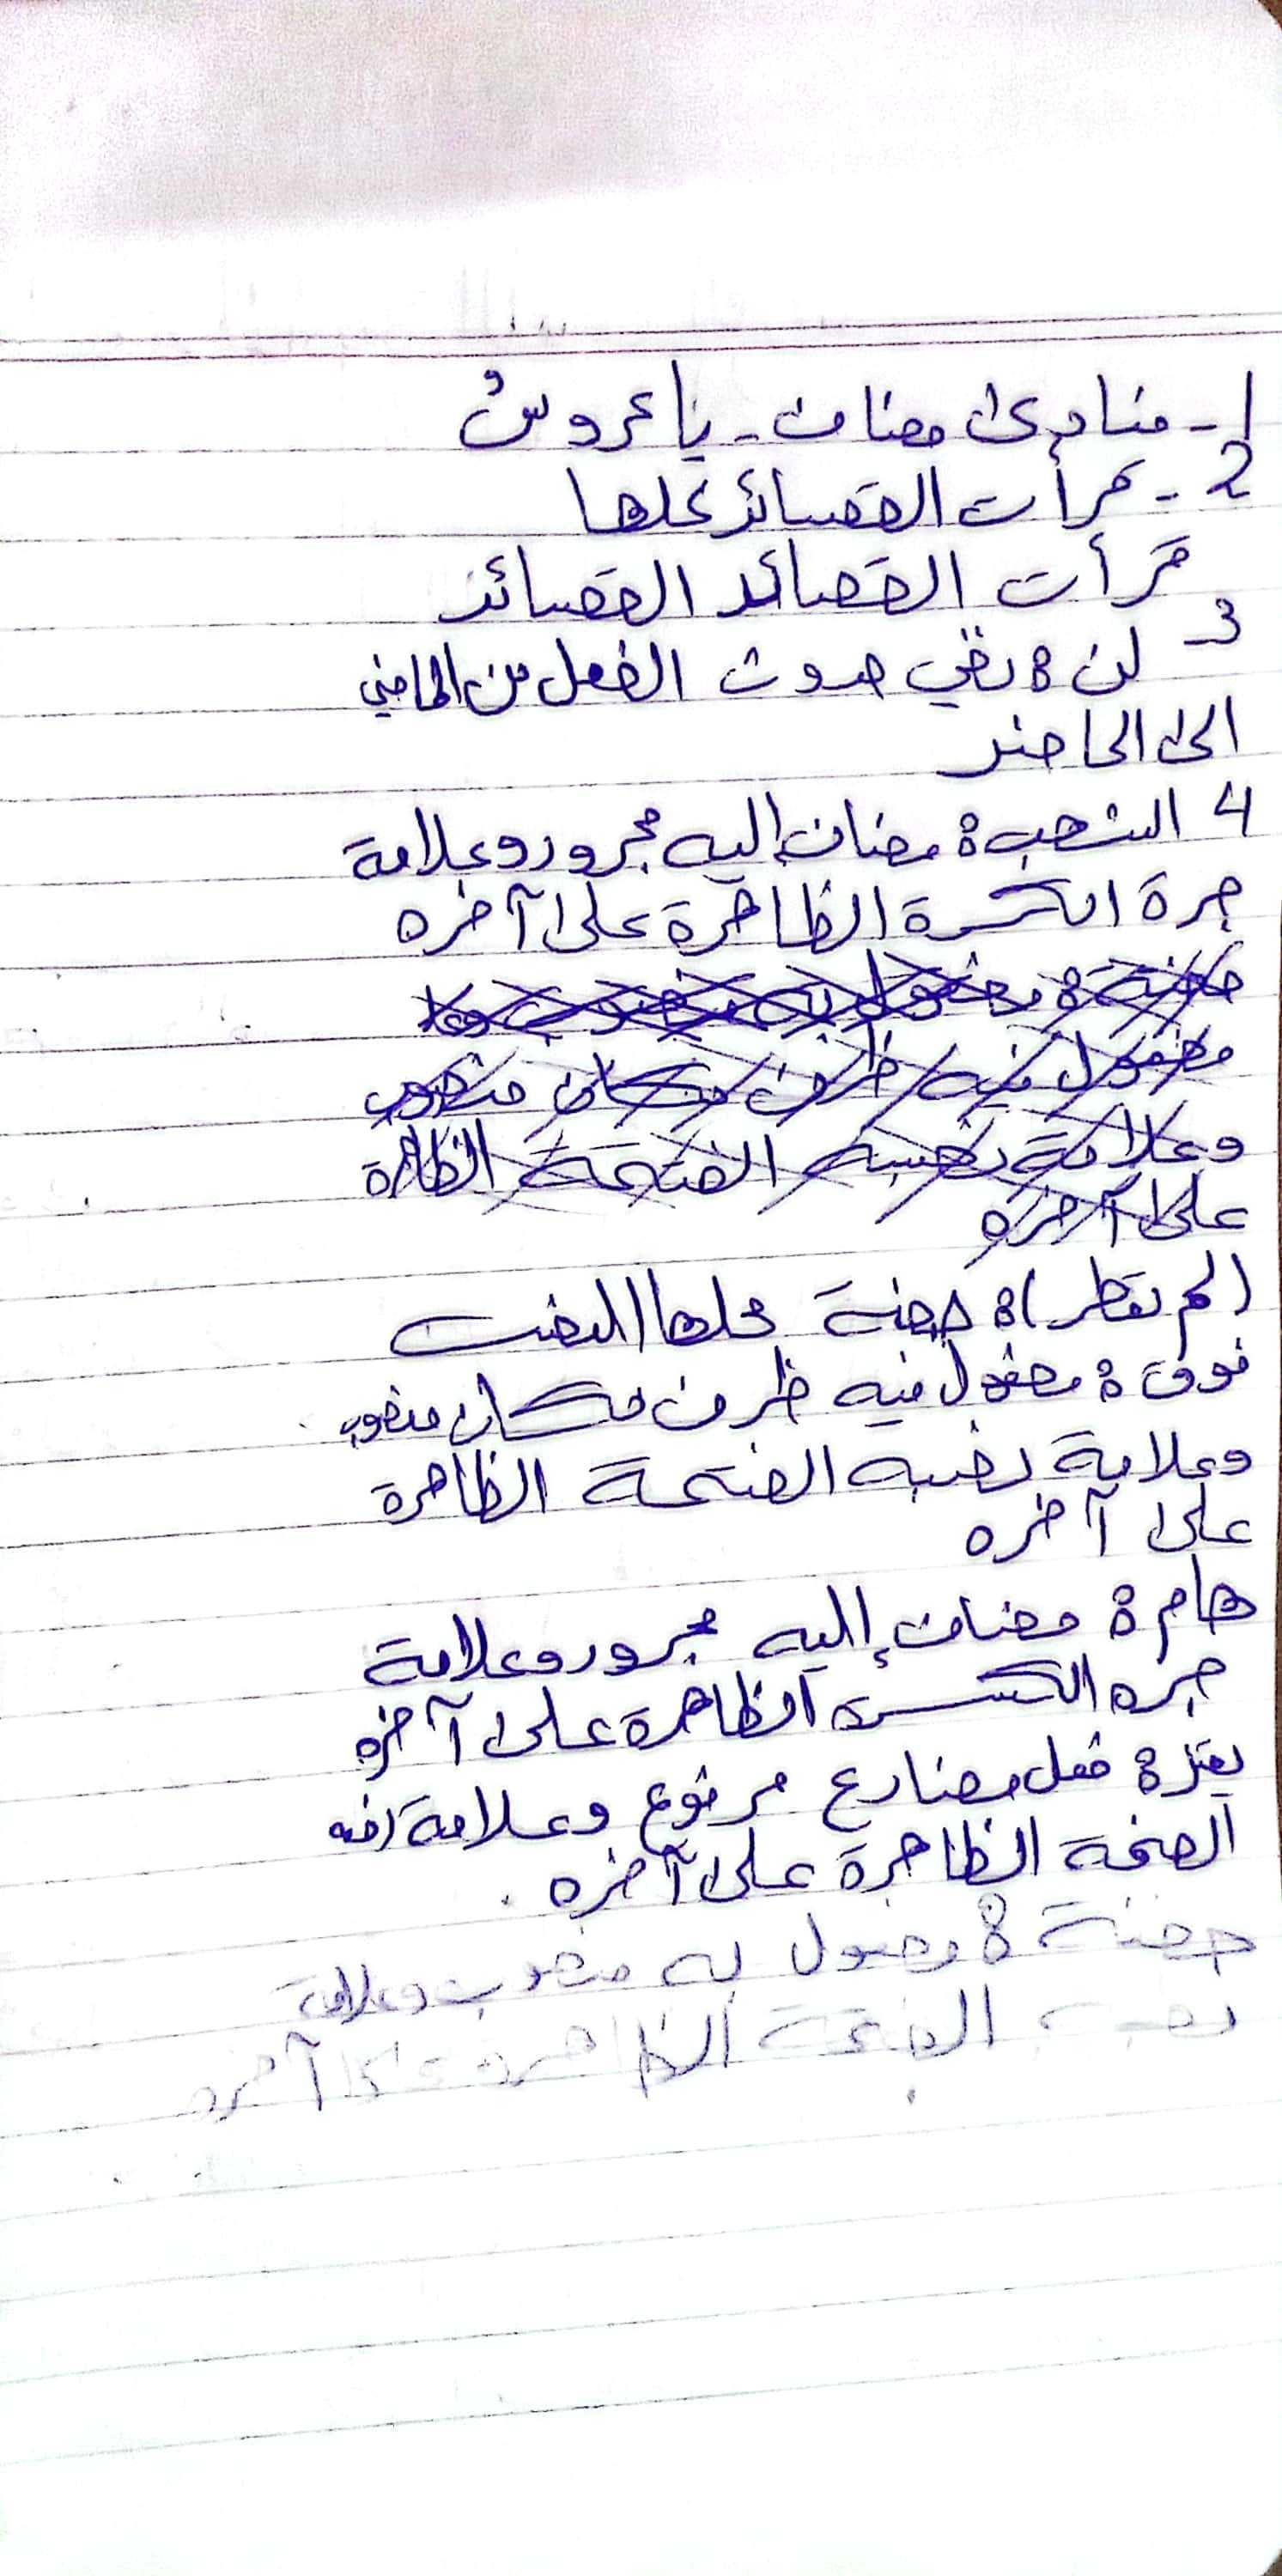 1- منادى مضاف - يا عروسُ
2- قرأت القصائد كلها
قرأت القصائد القصائد
3- لن : نفي حدوث الفعل من الماضي
الى الحاضر
4 الشهب : مضاف إليه مجرور وعلامة
جرة الكسرة الظاهرة على آخره
مفعول به منصوب وعلا
مفعول فيه ظرف مكان منصوب
وعلامة نصبه الفتحة الظاهرة
على آخره
(لم تقطر) : جملة محلها النصب
فوق : مفعول فيه ظرف مكان منصوب
وعلامة نصبه الفتحة الظاهرة
على آخره
هام : مضاف إليه مجرور وعلامة
جره الكسرة الظاهرة على آخره
فعل مضارع مرفوع وعلامة رفعه
الضمة الظاهرة على آخره .
مفعول به منصوب وعلامة
نصبه الفتحة الظاهرة على آخره